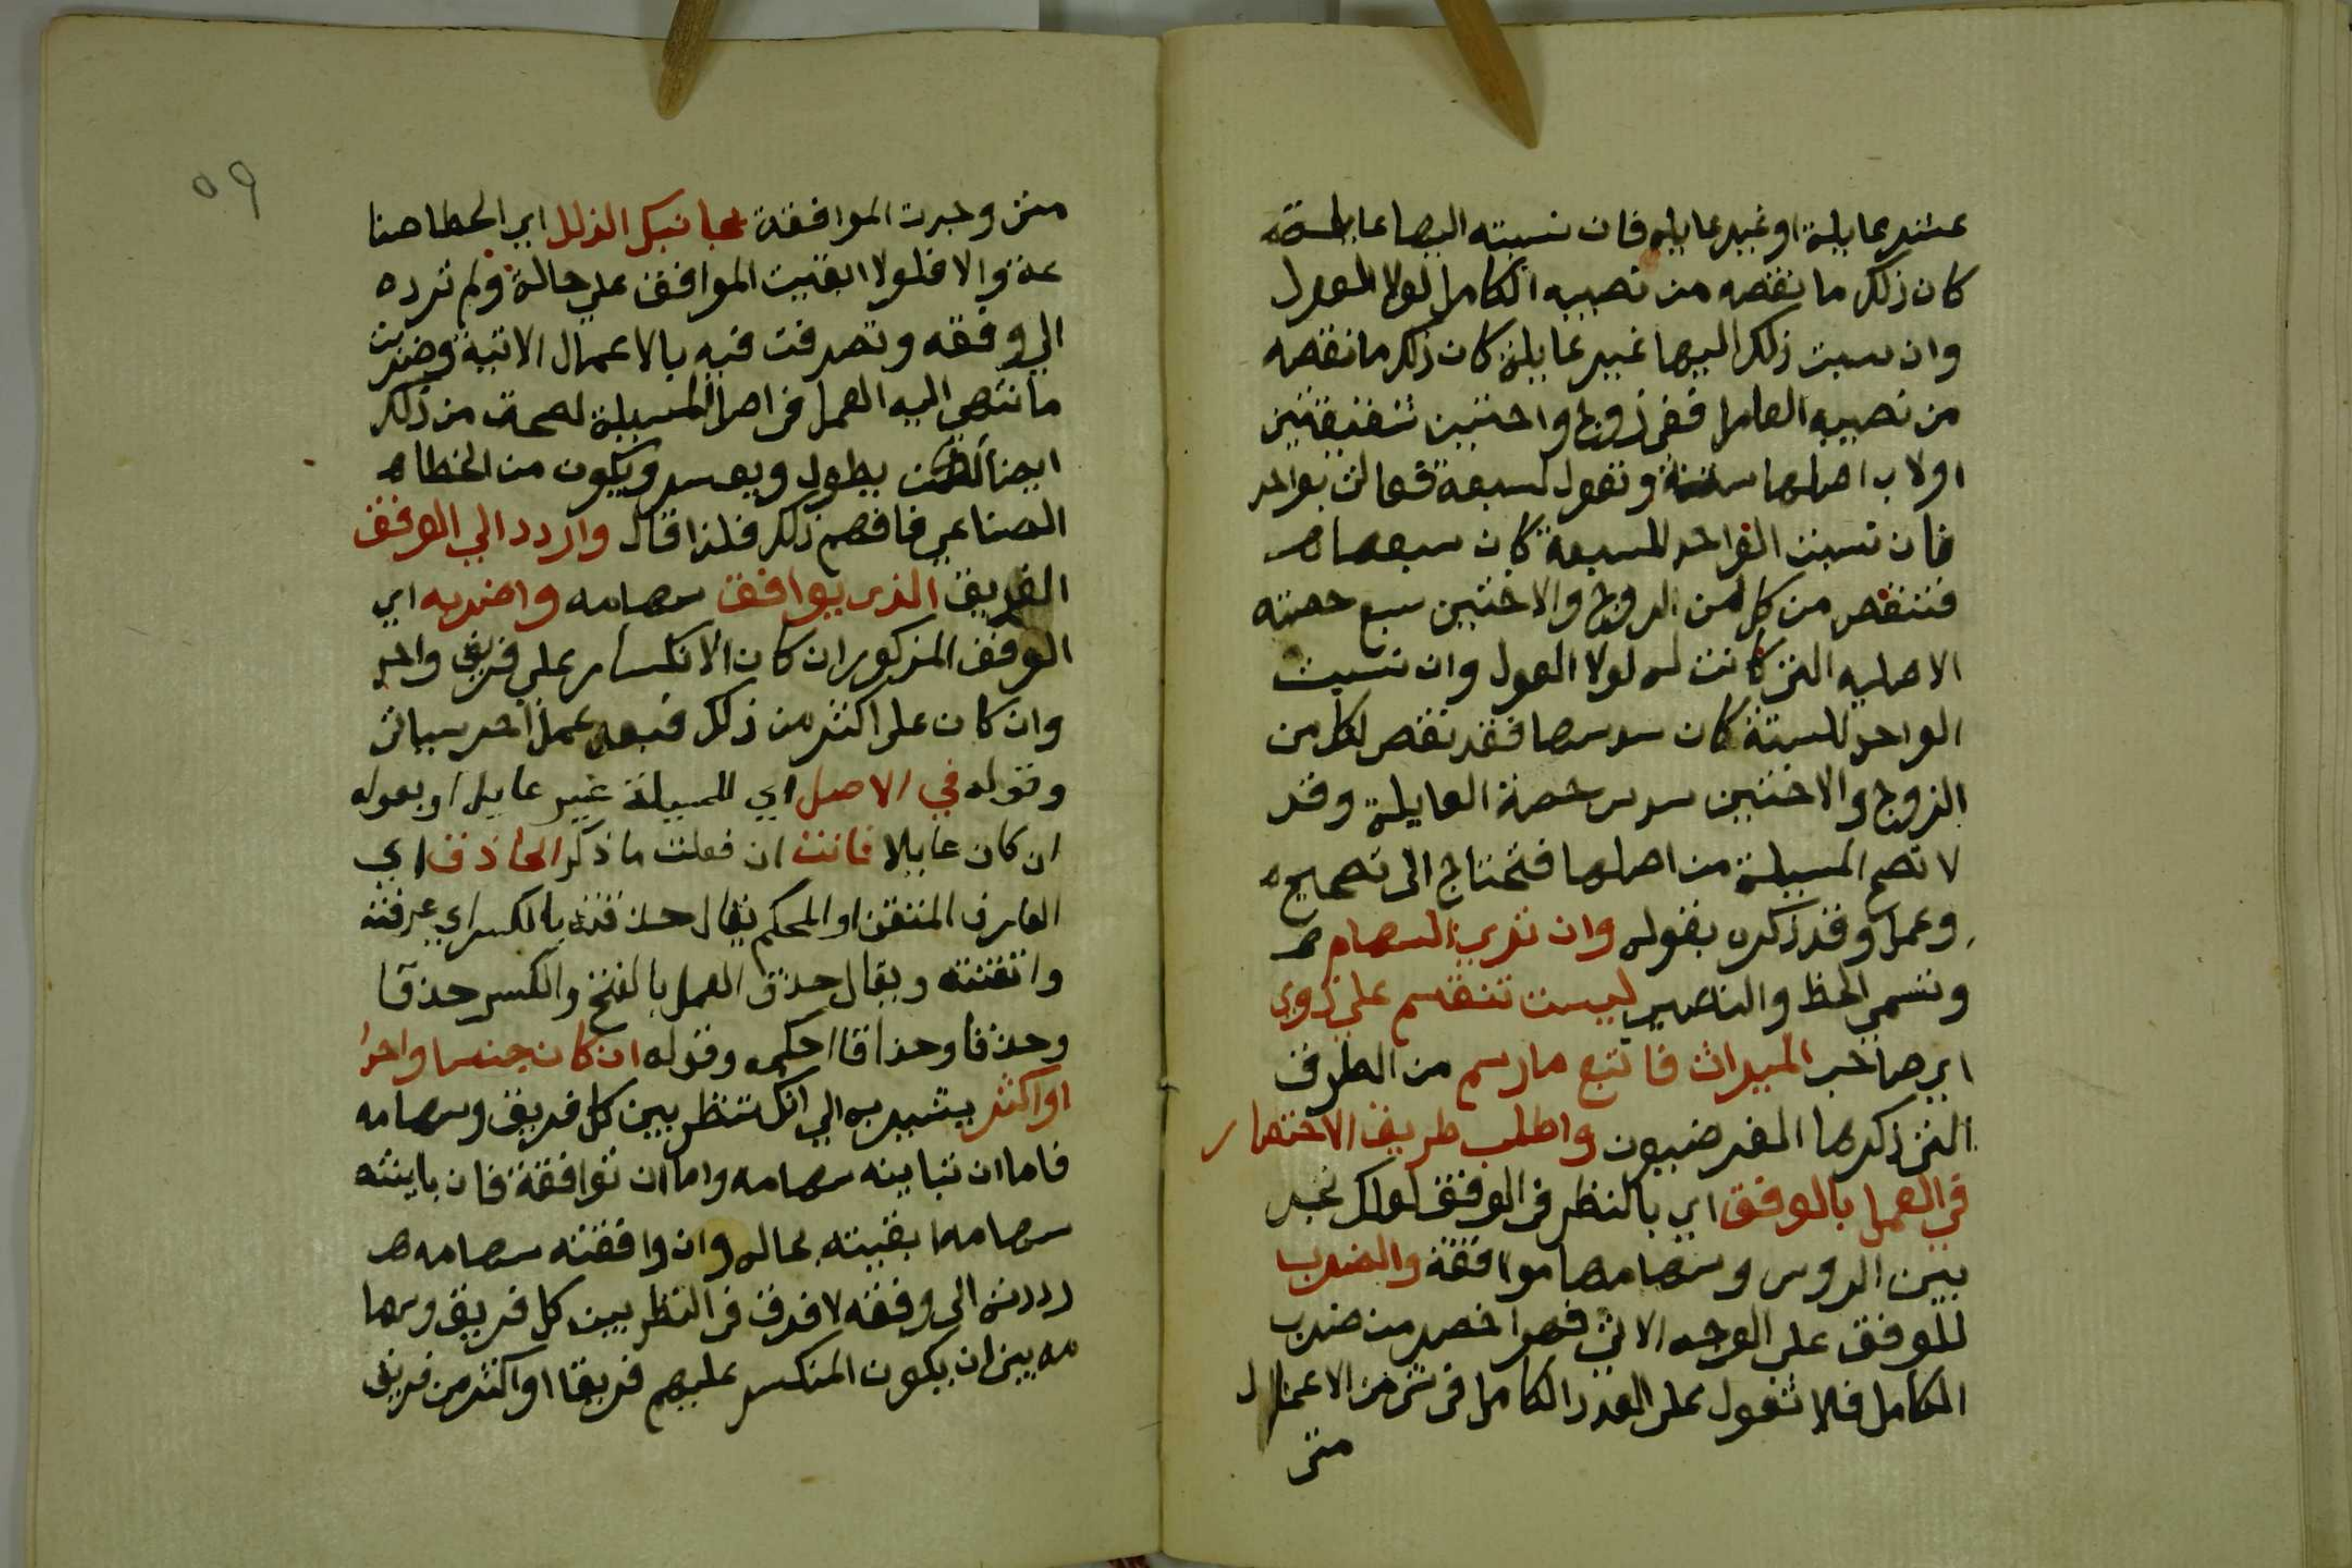 عشر عايلة او غير عايله فان نسبته اليها عايلة
كان ذلك ما نقصه من نصيبه الكامل لولا العول
وان نسبت ذلك اليها غير عايلة كان ذلك ما نقصه
من نصيبه العايل ففي زوج واختين شقيقتين
او لاب اصلها ستة وتعول لسبعة فعالت بواحد
فان نسبت الواحد للسبعة كان سبعها
فتنقص من كل من الزوج والاختين سبع حصته
الاصليه التي كانت له لولا العول وان نسبت
الواحد للستة كان سدسها فقد نقص لكل من
الزوج والاختين سدس حصة العايلة وقد
لا تصح المسيلة من اصلها فتحتاج الى تصحيح
وعمل وقد ذكره بقوله وان تري السهام
وتسمي الحظ والنصيب ليست تنقسم علي ذوي
اي صاحب الميراث فاتبع ما رسم من الطرق
التي ذكرها الفرضيون واطلب طريق الاختصار
في العمل بالوفق اي بالنظر في الوفق لعلك تجد
بين الروس وسهامها موافقة والضرب
للوفق علي الوجه الاتي فهو اخصر من ضرب
الكامل فلا تعول علي العدد الكامل في شي من الاعمال
متي
٥٩
متي وجدت الموافقة مجانبك الذلل اي الخطا صنا
عة والا فلولا ابقيت الموافق علي حالة ولم ترده
الي وفقه وتصرفت فيه بالاعمال الاتية وضربت
ما ننتهي اليه العمل في اصل المسيلة لصحت من ذلك
ايضا لكن يطول ويعسر ويكون من الخطا
الصناعي فافهم ذلك فلذا قال واردد الي الوفق
الفريق الذي يوافق سهامه واضربه اي
الوفق المذكور ان كان الانكسار علي فريق واحد
وان كان علي اكثر من ذلك فبعد عمل اخر سياتي
وقوله في الاصل اي للمسيلة غير عايل او بعوله
ان كان عايلا فانت ان فعلت ما ذكر الحاذق اي
العارف المتقن او المحكم يقال حذقته بالكسر اي عرفته
واتقنته ويقال حذق العمل بالفتح والكسر حذقا
وحذقا وحذاقا احكمه وقوله ان كان جنسا واحدا
او اكثر يشير به الي انك تنظر بين كل فريق وسهامه
فاما ان تباينه سهامه واما ان توافقة فان باينته
سهامه ابقيته بحاله وان وافقته سهامه
رددته الي وفقه لا فرق في النظر بين كل فريق وسها
مه بين ان يكون المنكسر عليهم فريقا او اكثر من فريق